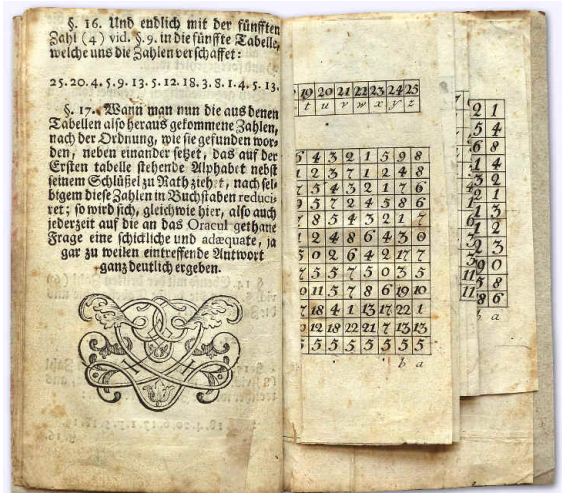 §. 16. Und endlich mit der fünfften
Zahl (4) vid. §. 9. in die fünffte Tabelle,
welche uns die Zahlen verschaffet:
25. 20. 4. 5. 9. 13. 5. 12. 18. 3. 8. 1. 4. 5. 13.
§. 17. Wann man nun die aus denen
Tabellen also heraus gekommene Zahlen,
nach der Ordnung, wie sie gefunden wor-
den, neben einander setzet, das auf der
Ersten tabelle stehende Alphabet nebst
seinem Schlüßel zu Rath zieh t, nach sel-
bigem diese Zahlen in Buchstaben reduci-
ret; so wird sich, gleichwie hier, also auch
jederzeit auf die an das Oracul gethane
Frage eine schickliche und adæquate, ja
gar zu weilen eintreffende Antwort
ganz deutlich ergeben.
19 20 21 22 23 24 25
t u v w x y z
5 4 3 2 1 5 9 8
1 2 3 7 1 2 4 8
7 5 4 3 2 1 7 6
9 5 7 2 4 5 8 6
7 8 5 4 3 2 1 7
1 2 4 8 6 4 3 0
5 0 2 6 4 2 17 7
7 5 5 7 5 0 3 5
0 11 5 7 8 6 19 10
7 18 4 1 13 17 22 1
0 12 18 22 21 7 13 13
5 5 5 5 5 5 5 5
b a
2 1
5 4
6 8
1 4
3 2
2 1
1 3
1 2
2 3
9 0
5 8
8 6
a